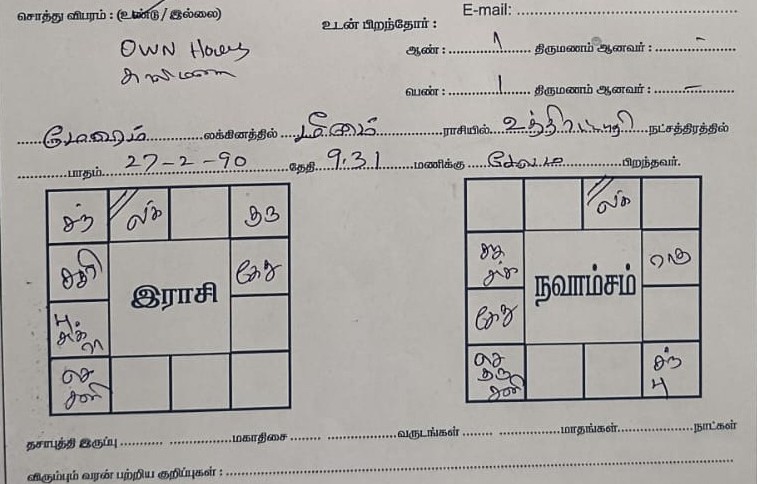 சொத்து விபரம் : (உண்டு / இல்லை)
E-mail:
உடன் பிறந்தோர் :
OWN House
ஆண் : 1 திருமணம் ஆனவர் : -
பெண் : 1 திருமணம் ஆனவர் : -
மேஷம் லக்கினத்தில் மீனம் ராசியில் உத்திரட்டாதி நட்சத்திரத்தில்
பாதம் 27-2-90 தேதி 9.31 மணிக்கு பிறந்தவர்.
சந் லக் குரு
லக்
சூரி கேது
ராகு
இராசி
நவாம்சம்
பு சுக் ரா
கேது
செ சனி
செ குரு சனி சந் பு
தசாபுத்தி இருப்பு மகாதிசை வருடங்கள் மாதங்கள் நாட்கள்
விரும்பும் வரன் பற்றிய குறிப்புகள் :